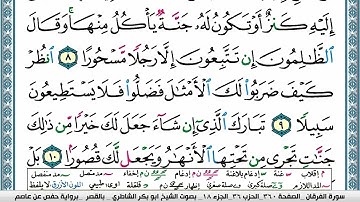 إِلَيْهِ كَنزٌ أَوْ تَكُونُ لَهُۥ جَنَّةٌ يَأْكُلُ مِنْهَا ۚ وَقَالَ
ٱلظَّـٰلِمُونَ إِن تَتَّبِعُونَ إِلَّا رَجُلًا مَّسْحُورًا ٨ ٱنظُرْ
كَيْفَ ضَرَبُوا۟ لَكَ ٱلْأَمْثَـٰلَ فَضَلُّوا۟ فَلَا يَسْتَطِيعُونَ
سَبِيلًا ٩ تَبَارَكَ ٱلَّذِىٓ إِن شَآءَ جَعَلَ لَكَ خَيْرًا مِّن ذَٰلِكَ
جَنَّـٰتٍ تَجْرِى مِن تَحْتِهَا ٱلْأَنْهَـٰرُ وَيَجْعَل لَّكَ قُصُورًۢا ١٠ بَلْ
سورة الفرقان _ الصفحة ٣٦٠ _ الحزب ٣٦ _ الجزء ١٨ _ بصوت الشيخ أبو بكر الشاطري _ بالقصر _ برواية حفص عن عاصم